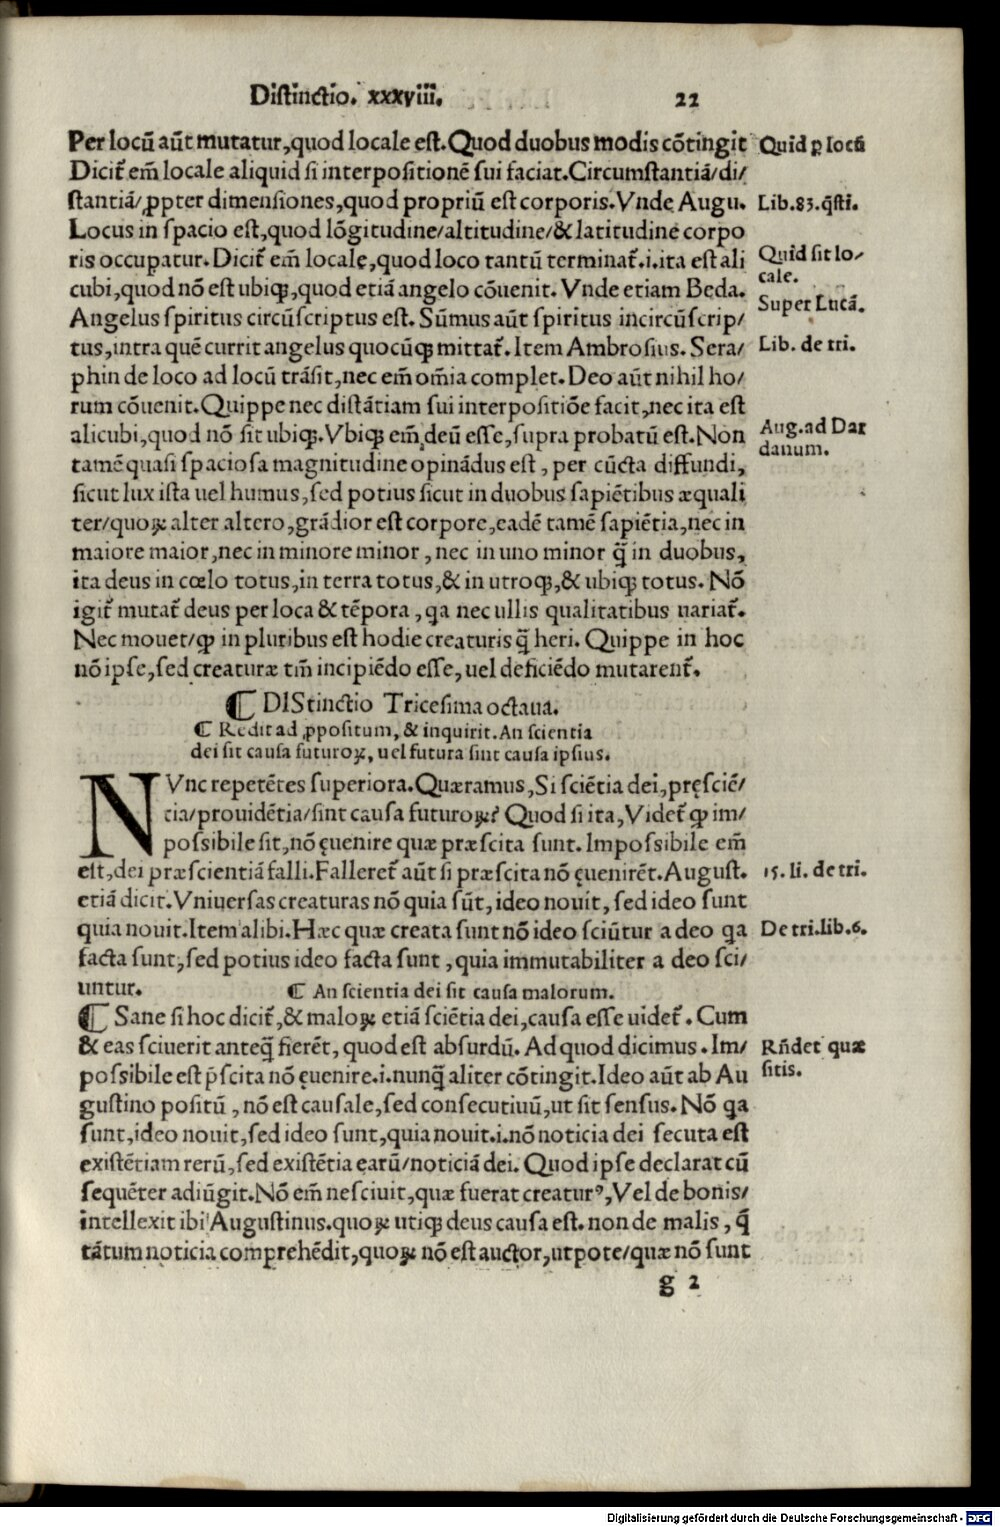 Distinctio. xxxviii. 22
Per locū aūt mutatur, quod locale est. Quod duobus modis cōtingit
Quid ꝑ locū
Dicit̃ em̃ locale aliquid si interpositionē sui faciat. Circumstantiā/di/
stantiā/ꝓpter dimensiones, quod propriū est corporis. Vnde Augu.
Lib. 83. q̄sti.
Locus in spacio est, quod lōgitudine/altitudine/& latitudine corpo
ris occupatur. Dicit̃ em̃ locale, quod loco tantū terminat̃. i. ita est ali
Quid sit lo/
cale.
cubi, quod nō est ubiqꝫ, quod etiā angelo cōuenit. Vnde etiam Beda.
Super Lucā.
Angelus spiritus circūscriptus est. Sūmus aūt spiritus incircūscrip/
tus, intra quē currit angelus quocūqꝫ mittat̃. Item Ambrosius. Sera/
Lib. de tri.
phin de loco ad locū trāsit, nec em̃ om̃ia complet. Deo aūt nihil ho/
rum cōuenit. Quippe nec distātiam sui interpositiōe facit, nec ita est
alicubi, quod nō sit ubiqꝫ. Vbiqꝫ em̃ deū esse, supra probatū est. Non
Aug. ad Dar
danum.
tamē quasi spaciosa magnitudine opinādus est, per cūcta diffundi,
sicut lux ista uel humus, sed potius sicut in duobus sapiētibus æquali
ter/quoꝝ alter altero, grādior est corpore, eadē tamē sapiētia, nec in
maiore maior, nec in minore minor, nec in uno minor q̃ in duobus,
ita deus in cœlo totus, in terra totus, & in utroqꝫ, & ubiqꝫ totus. Nō
igit̃ mutat̃ deus per loca & tēpora, qa nec ullis qualitatibus uariat̃.
Nec mouet/ꝙ in pluribus est hodie creaturis q̃ heri. Quippe in hoc
nō ipse, sed creaturæ tm̃ incipiēdo esse, uel deficiēdo mutarent̃.
¶ DIStinctio Tricesima octaua.
¶ Redit ad ꝓpositum, & inquirit. An scientia
dei sit causa futuroꝝ, uel futura sint causa ipsius.
NVnc repetētes superiora. Quæramus, Si sciētia dei, pręsciē/
tia/prouidētia/sint causa futuroꝝ? Quod si ita, Videt̃ ꝙ im/
possibile sit, nō ęuenire quæ præscita sunt. Impossibile em̃
est, dei præscientiā falli. Falleret̃ aūt si præscita nō ęuenirēt. August.
15. li. de tri.
etiā dicit. Vniuersas creaturas nō quia sūt, ideo nouit, sed ideo sunt
quia nouit. Item alibi. Hæc quæ creata sunt nō ideo sciūtur a deo qa
De tri. lib. 6.
facta sunt, sed potius ideo facta sunt, quia immutabiliter a deo sci/
untur. ¶ An scientia dei sit causa malorum.
¶ Sane si hoc dicit̃, & maloꝝ etiā sciētia dei, causa esse uidet̃. Cum
& eas sciuerit anteq̃ fierēt, quod est absurdū. Ad quod dicimus. Im/
Rñdet quæ
sitis.
possibile est p̄scita nō ęuenire. i. nunq̃ aliter cōtingit. Ideo aūt ab Au
gustino positū, nō est causale, sed consecutiuū, ut sit sensus. Nō qa
sunt, ideo nouit, sed ideo sunt, quia nouit. i. nō noticia dei secuta est
existētiam rerū, sed existētia earū/noticiā dei. Quod ipse declarat cū
sequēter adiūgit. Nō em̃ nesciuit, quæ fuerat creaturꝰ, Vel de bonis/
intellexit ibi Augustinus. quoꝝ utiqꝫ deus causa est. non de malis, q̃
tātum noticia comprehēdit, quoꝝ nō est auctor, utpote/quæ nō sunt
g 2
Digitalisierung gefördert durch die Deutsche Forschungsgemeinschaft - DFG